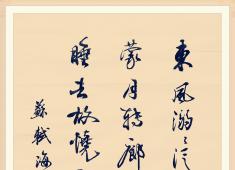 東風溺々泛
蒙月轉廊
睡去故燒
蘇軾海